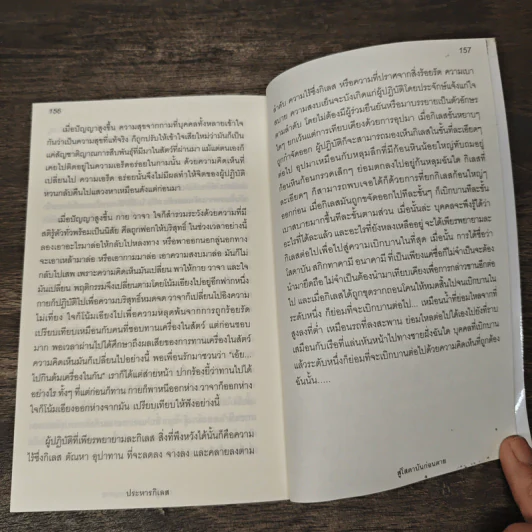 156
เมื่อปัญญาสูงขึ้น ความสุขจากกามที่บุคคลทั้งหลายเข้าใจ
กันว่ามันเป็นความสุขที่แท้จริง ก็ถูกปรับให้เข้าใจเสียใหม่ว่ามันก็เป็น
แต่สัญชาติญาณการสืบพันธุ์ที่มีมาในสัตว์ที่ผ่านมา แม้แต่ตนเองก็
เคยไปติดอยู่ในความเอร็ดอร่อยในกามนั้น ด้วยความคิดเห็นที่
เปลี่ยนไป ความเอร็ด อร่อยนั้นจึงไม่มีผลทำให้จิตของผู้ปฏิบัติ
หวนกลับคืนไปแสวงหาเหมือนดังแต่ก่อนมา
เมื่อปัญญาสูงขึ้น กาย วาจา ใจก็สำรวมระวังด้วยความที่มี
สติรู้ตัวทั่วพร้อมเป็นนิสัย ศีลถูกฟอกให้บริสุทธิ์ ในช่วงเวลาอย่างนี้
ลองเอาอะไรมาล่อให้กลับไปให้หลงทาง หรือพาออกนอกลู่นอกทาง
จะเอาเหล้ามาล่อ หรือเอากามมาล่อ เอาความสงบมาล่อ มันก็ไม่
กลับไปเสพ เพราะความคิดเห็นมันเปลี่ยน พาให้กาย วาจา และใจ
มันเปลี่ยน พฤติกรรมจึงเปลี่ยนตามโดยโน้มเอียงไปอยู่อีกฟากหนึ่ง
กายก็ปฏิบัติไปเพื่อความบริสุทธิ์หมดจด วาจาก็เปลี่ยนไปถึงความ
ไม่เที่ยง ใจก็โน้มเอียงไปเพื่อความหลุดพ้นจากการถูกร้อยรัด
เปรียบเทียบเหมือนกับคนที่ชอบทานเครื่องในสัตว์ แต่ก่อนชอบ
มาก พอเวลาผ่านไปได้ศึกษาถึงผลเสียของการทานเครื่องในสัตว์
ความคิดเห็นมันก็เปลี่ยนไปอย่างนี้ พอเพื่อนรักมาชวนว่า "เฮ้ย...
ไปกินต้มเครื่องในกัน" เราก็ได้แต่ส่ายหน้า ปากร้องยี้ว่าทานไปได้
อย่างไร ทั้งๆ ที่แต่ก่อนก็ทาน กายก็พาหนีออกห่าง วาจาก็ออกห่าง
ใจก็โน้มเอียงออกห่างจากมัน เปรียบเทียบให้ฟังอย่างนี้
ผู้ปฏิบัติที่เพียรพยายามละกิเลส สิ่งที่พึงหวังได้นั้นก็คือความ
ไร้ซึ่งกิเลส ตัณหา อุปาทาน ที่จะลดลง จางลง และคลายลงตาม
ประหารกิเลส
157
ลำดับ ความไร้ซึ่งกิเลส หรือความที่ปราศจากสิ่งร้อยรัด ความเบา
สบาย ความสงบเย็นจะบังเกิดแก่ผู้ปฏิบัติโดยประจักษ์แจ้งแก่ใจ
ตามลำดับ โดยไม่ต้องมีผู้ร่วมยืนยันหรือมาบรรยายเป็นตัวอักษร
ใดๆ ยกเว้นแต่การเทียบเคียงด้วยการอุปมา เมื่อกิเลสชั้นหยาบๆ
ถูกกำจัดออก ผู้ปฏิบัติก็จะสามารถมองเห็นกิเลสในชั้นที่ละเอียดๆ
ต่อไป อุปมาเหมือนกับหลุมลึกที่มีก้อนหินน้อยใหญ่ทับถมอยู่
ก้อนหินก้อนกรวดเล็กๆ ย่อมตกลงไปอยู่ก้นหลุมอันใด กิเลสที่
ละเอียดๆ ก็สามารถพบเจอได้ก็ด้วยการที่ยกกิเลสก้อนใหญ่ๆ
ออกก่อน เมื่อกิเลสมันถูกขจัดออกไปทีละชั้นๆ ก็เบิกบานทีละชั้น
เบาสบายมากขึ้นทีละชั้นตามส่วน เมื่อนั้นล่ะ บุคคลจะพึงรู้ได้ว่า
อะไรที่ได้ละแล้ว และอะไรที่ยังหลงเหลืออยู่ จะได้เพียรพยายามละ
กิเลสต่อไปเพื่อไปสู่ความเบิกบานในที่สุด เมื่อนั้น การได้ชื่อว่า
โสดาบัน สกิทาคามี อนาคามี ที่เป็นเพียงแค่ชื่อก็ไม่จำเป็นจะต้อง
นำมายึดถือ ไม่จำเป็นต้องนำมาเทียบเคียงเพื่อการกล่าวขานอีกต่อ
ไป และเมื่อกิเลสได้ถูกขุดรากถอนโคนให้หมดสิ้นไปจนเบิกบานใน
ระดับหนึ่ง ก็ย่อมที่จะเบิกบานต่อไป... เหมือนน้ำที่ย่อมไหลจากที่
สูงลงที่ต่ำ เหมือนรถที่ลงสะพาน ย่อมไหลต่อไปได้เองไปยังที่ราบ
เหมือนกับเรือที่แล่นหันหน้าไปทางชายฝั่งฉันใด บุคคลที่เบิกบาน
แล้วระดับหนึ่งก็ย่อมที่จะเบิกบานต่อไปด้วยความคิดเห็นที่ถูกต้อง
ฉันนั้น.....
สู่โสดาบันก่อนตาย